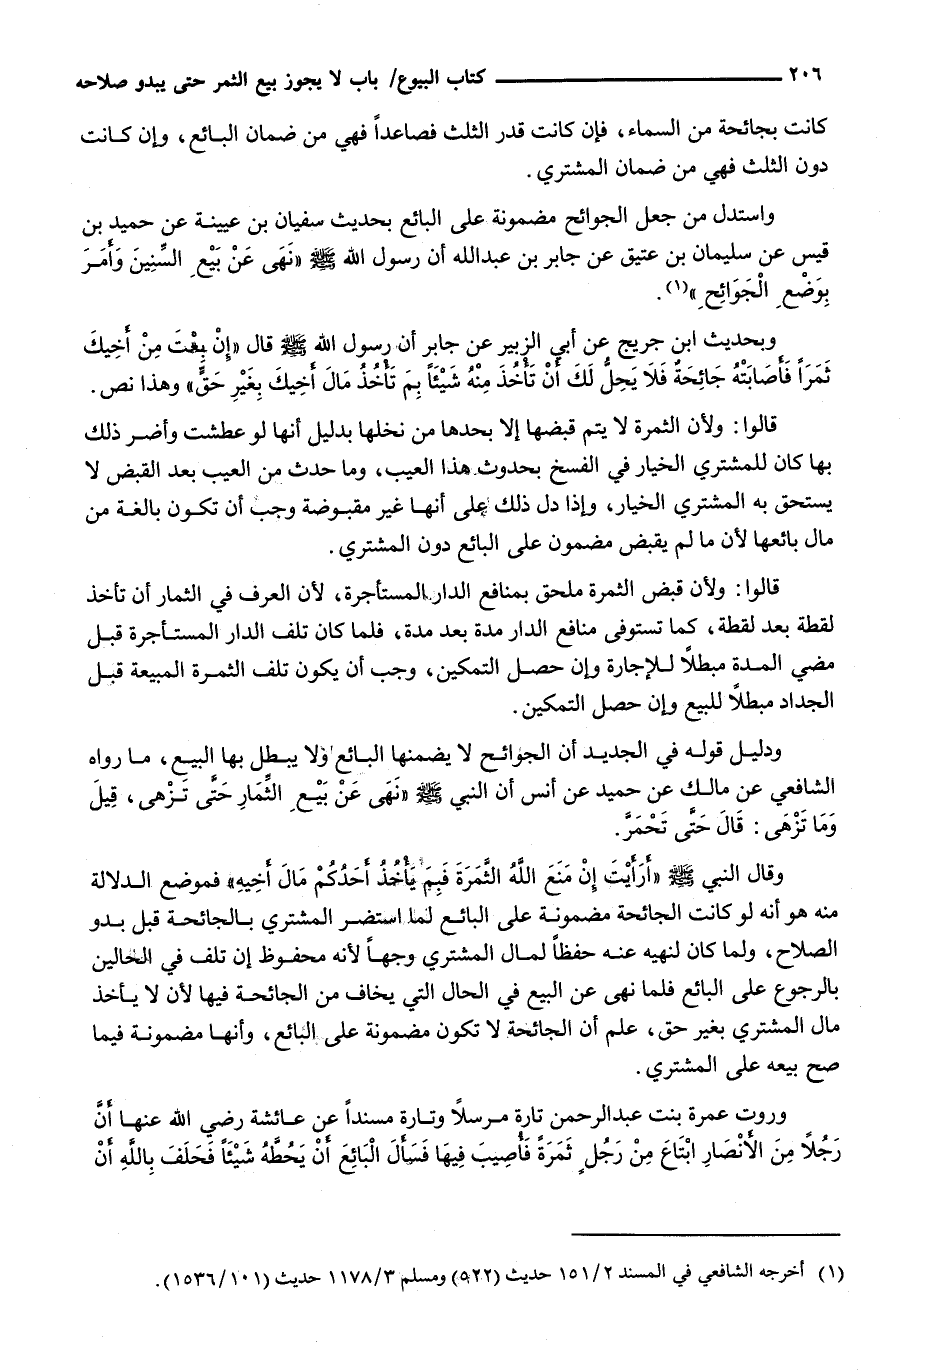 ٢٠٦ كتاب البيوع/ باب لا يجوز بيع الثمر حتى يبدو صلاحه
كانت بجائحة من السماء، فإن كانت قدر الثلث فصاعداً فهي من ضمان البائع، وإن كانت
دون الثلث فهي من ضمان المشتري.
واستدل من جعل الجوائح مضمونة على البائع بحديث سفيان بن عيينة عن حميد بن
قيس عن سليمان بن عتيق عن جابر بن عبدالله أن رسول الله ﷺ «نَهَى عَنْ بَيْعِ السِّنِينَ وَأَمَرَ
بِوَضْعِ الْجَوَائِحِ»(١).
وبحديث ابن جريج عن أبي الزبير عن جابر أن رسول الله ﷺ قال «إِنْ بِعْتَ مِنْ أَخِيكَ
ثَمَراً فَأَصَابَتْهُ جَائِحَةٌ فَلَا يَحِلُّ لَكَ أَنْ تَأْخُذَ مِنْهُ شَيْئاً بِمَ تَأْخُذُ مَالَ أَخِيكَ بِغَيْرِ حَقٍّ» وهذا نص.
قالوا: ولأن الثمرة لا يتم قبضها إلا بحدها من نخلها بدليل أنها لو عطشت وأضر ذلك
بها كان للمشتري الخيار في الفسخ بحدوث هذا العيب، وما حدث من العيب بعد القبض لا
يستحق به المشتري الخيار، وإذا دل ذلك على أنها غير مقبوضة وجب أن تكون بالغة من
مال بائعها لأن ما لم يقبض مضمون على البائع دون المشتري.
قالوا: ولأن قبض الثمرة ملحق بمنافع الدار المستأجرة، لأن العرف في الثمار أن تأخذ
لقطة بعد لقطة، كما تستوفى منافع الدار مدة بعد مدة، فلما كان تلف الدار المستأجرة قبل
مضي المدة مبطلاً للإجارة وإن حصل التمكين، وجب أن يكون تلف الثمرة المبيعة قبل
الجداد مبطلاً للبيع وإن حصل التمكين.
ودليل قوله في الجديد أن الجوائح لا يضمنها البائع ولا يبطل بها البيع، ما رواه
الشافعي عن مالك عن حميد عن أنس أن النبي ﷺ «نَهَى عَنْ بَيْعِ الثِّمَارِ حَتَّى تَزْهى، قِيلَ
وَمَا تَزْهَى: قَالَ حَتَّى تَحْمَرَّ.
وقال النبي ﷺ «أَرَأَيْتَ إِنْ مَنَعَ اللَّهُ الثَّمَرَةَ فَبِمَ يَأْخُذُ أَحَدُكُمْ مَالَ أَخِيهِ» فموضع الدلالة
منه هو أنه لو كانت الجائحة مضمونة على البائع لما استضر المشتري بالجائحة قبل بدو
الصلاح، ولما كان لنهيه عنه حفظاً لمال المشتري وجهاً لأنه محفوظ إن تلف في الحالين
بالرجوع على البائع فلما نهى عن البيع في الحال التي يخاف من الجائحة فيها لأن لا يأخذ
مال المشتري بغير حق، علم أن الجائحة لا تكون مضمونة على البائع، وأنها مضمونة فيما
صح بيعه على المشتري.
وروت عمرة بنت عبدالرحمن تارة مرسلاً وتارة مسنداً عن عائشة رضي الله عنها أَنَّ
رَجُلاً مِنَ الْأَنْصَارِ ابْتَاعَ مِنْ رَجُلٍ ثَمَرَةً فَأُصِيبَ فِيهَا فَسَأَلَ الْبَائِعَ أَنْ يَحُطَّهُ شَيْئاً فَحَلَفَ بِاللَّهِ أَنْ
(١) أخرجه الشافعي في المسند ١٥١/٢ حديث (٥٢٢) ومسلم ١١٧٨/٣ حديث (١٥٣٦/١٠١).